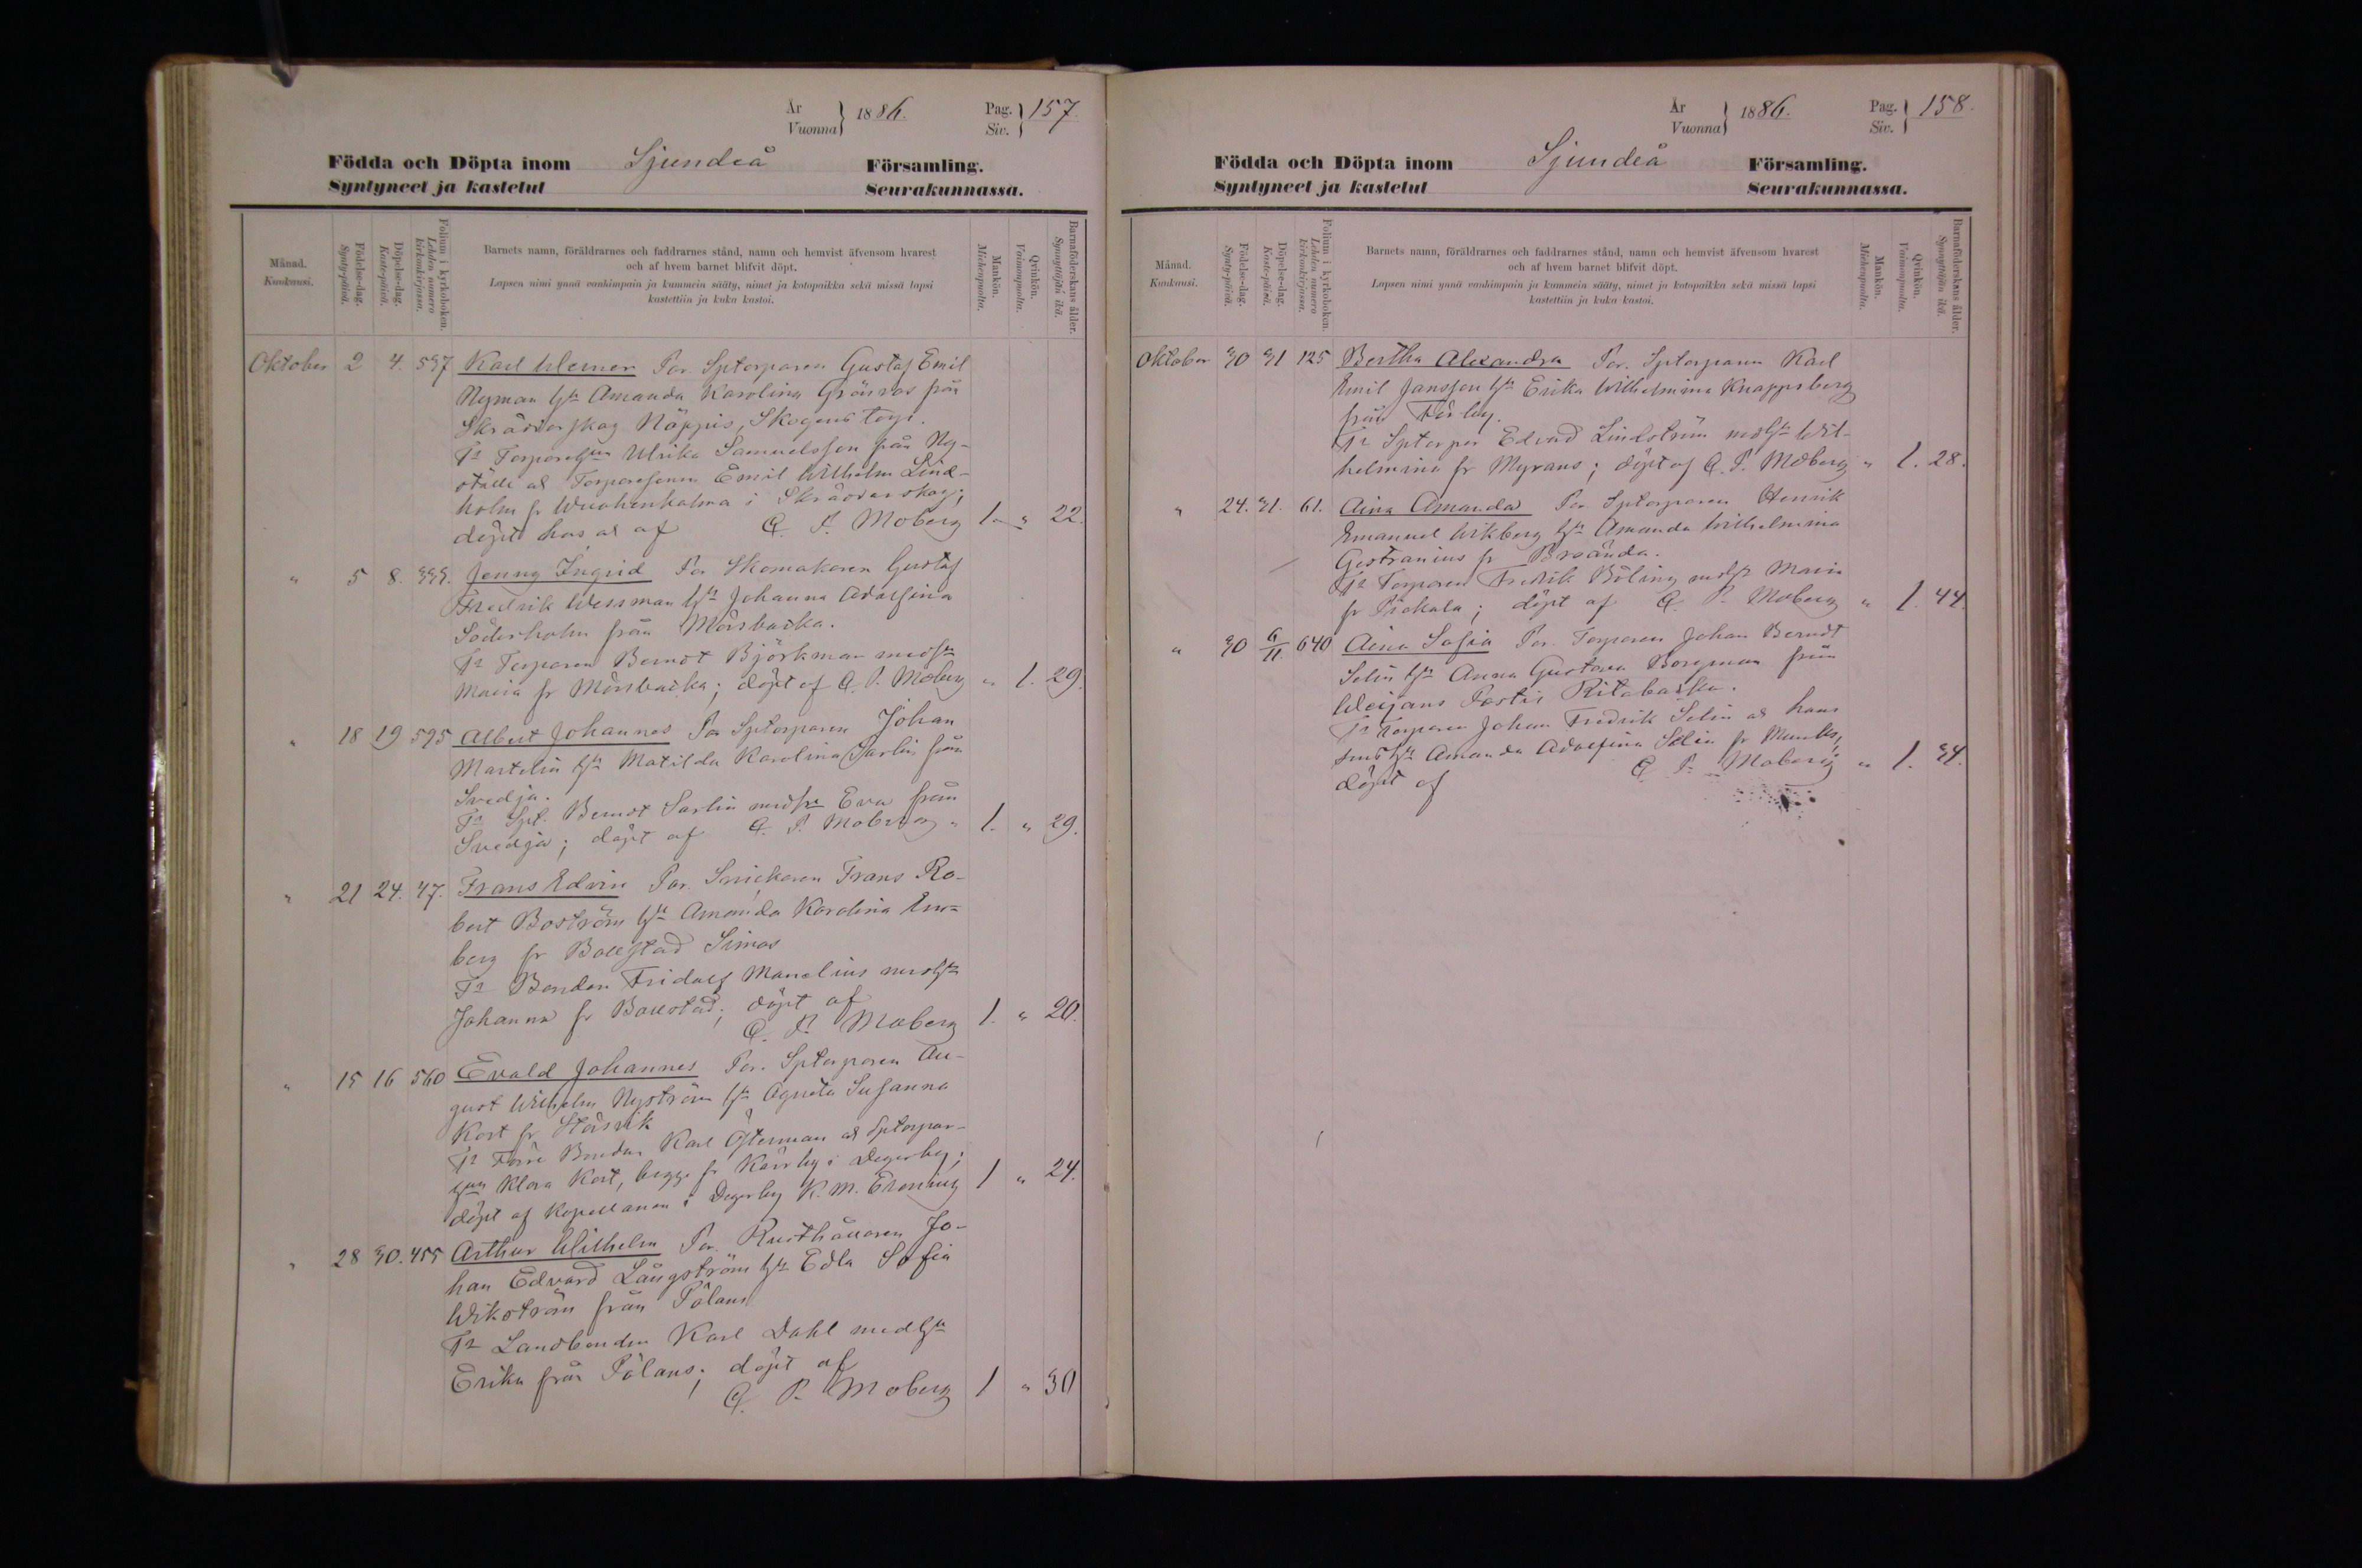 År
Vuonna } 1886. Pag.
Siv. } 157.
Födda och Döpta inom Sjundeå Församling.
Syntyneet ja kastetut Seurakunnassa.
Månad.
Kuukausi.
Födelse-dag.
Synty-päivä.
Döpelse-dag.
Kaste-päivä.
Folium i kyrkoboken.
Lehden numero kirkonkirjassa.
Barnets namn, föräldrarnes och faddrarnes stånd, namn och hemvist äfvensom hvarest
och af hvem barnet blifvit döpt.
Lapsen nimi ynnä vanhimpain ja kummein sääty, nimet ja kotopaikka sekä missä lapsi
kastettiin ja kuka kastoi.
Mankön.
Miehenpuolta.
Qvinkön.
Vaimonpuolta.
Barnaföderskans ålder.
Synnyttäjän ikä.
Oktober 2 4. 537 Karl Werner För. Sptorparen Gustaf Emil
Nyman hu Amanda Karolina Grönroos från
Skräddarskog Näppis, Skogens torp.
Fr Torparehun Ulrika Samuelsson från Ny-
ställe o Torparesonen Emil Wilhelm Lind-
holm fr i Skräddarskog;
döpt hos af G. P. Moberg 1. „ 22.
„ 5 8. 335. Jenny Ingrid För Skomakaren Gustaf
Fredrik Wessman hu Johanna Adolfina
Söderholm från Mörsbacka.
Fr Torparen Berndt Björkman med hu
Maria fr Mörsbacka; döpt af G. P. Moberg „ 1. 29.
„ 18 19 595 Albert Johannes För Sptorparen Johan
Martelin hu Matilda Karolina Sarlin från
Svedja.
Fr Spt. Berndt Sarlin med hu Eva från
Svedja; döpt af G. P. Moberg „ 1. „ 29.
„ 21 24. 47. Frans Edvin För. Snickaren Frans Ro-
bert Boström hu Amanda Karolina En-
berg fr Bollstad Simos
Fr Bonden Fridolf Manelius med hu
Johanna fr Bollstad; döpt af
G. P. Moberg 1. „ 20.
„ 15 16 560 Evald Johannes För. Sptorparen Au-
gust Wilhelm Nyström hu Agneta Susanna
Kort fr Störsvik
Fr Förre Bonden Karl Österman o Sptorpar-
hun Klara Kort, begge fr Kärrby i Degerby;
döpt af Kapellanen i Degerby K. M. 1 „ 24.
„ 28 30. 455 Arthur Wilhelm För. Rusthållaren Jo-
han Edvard Långström hu Edla Sofia
Wikström från Pölans
Fr Landbonden Karl Dahl med hu
Erika från Pölans; döpt af
G. P. Moberg 1 „ 30
År
Vuonna } 1886. Pag.
Siv. } 158.
Födda och Döpta inom Sjundeå Församling.
Syntyneet ja kastetut Seurakunnassa.
Månad.
Kuukausi.
Födelse-dag.
Synty-päivä.
Döpelse-dag.
Kaste-päivä.
Folium i kyrkoboken.
Lehden numero kirkonkirjassa.
Barnets namn, föräldrarnes och faddrarnes stånd, namn och hemvist äfvensom hvarest
och af hvem barnet blifvit döpt.
Lapsen nimi ynnä vanhimpain ja kummein sääty, nimet ja kotopaikka sekä missä lapsi
kastettiin ja kuka kastoi.
Mankön.
Miehenpuolta.
Qvinkön.
Vaimonpuolta.
Barnaföderskans ålder.
Synnyttäjän ikä.
Oktober 30 31 125 Bertha Alexandra För. Sptorparen Karl
Emil Jansson hu Erika Wilhelmina Knappsberg
från Tårby.
Fr Sptorpar Edvard Lindström med hu Wil-
helmina fr Myrans; döpt af G. P. Moberg „ 1. 28.
„ 24. 31. 61. Aina Amanda För Sptorparen Henrik
Emanuel Wikberg hu Amanda Wilhelmina
Gestranius fr Broända.
Fr Torparen Fredrik Böling med hu Maria
fr Pickala; döpt af G. P. Moberg „ 1. 44.
„ 30 6/11. 640 Aina Sofia För. Torparen Johan Berndt
Selin hu Anna Gustava Borgman från
Weijans Ritobacka.
Fr Torparen Johan Fredrik Selin o hans
hu Amanda Adolfina Selin fr Munks;
döpt af G. P. Moberg „ 1. 34.